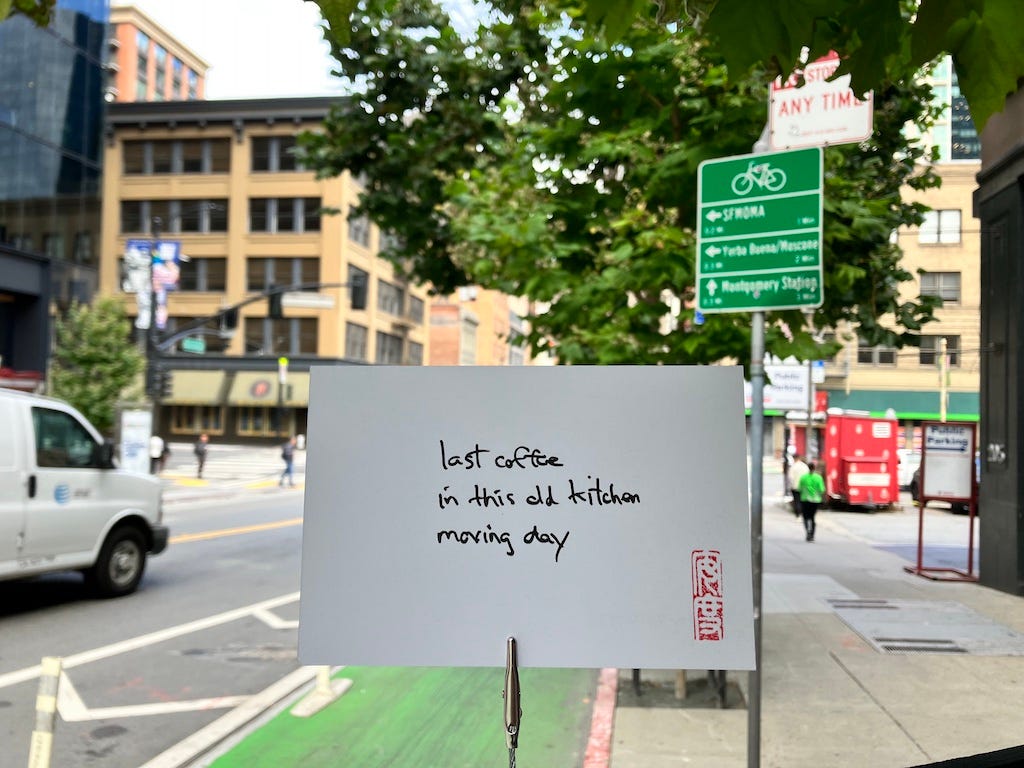 STOP
ANY TIME
SFMOMA
Yerba Buena/Moscone
Montgomery Station
last coffee
in this old kitchen
moving day
Public
Parking
Public
Parking
at&t